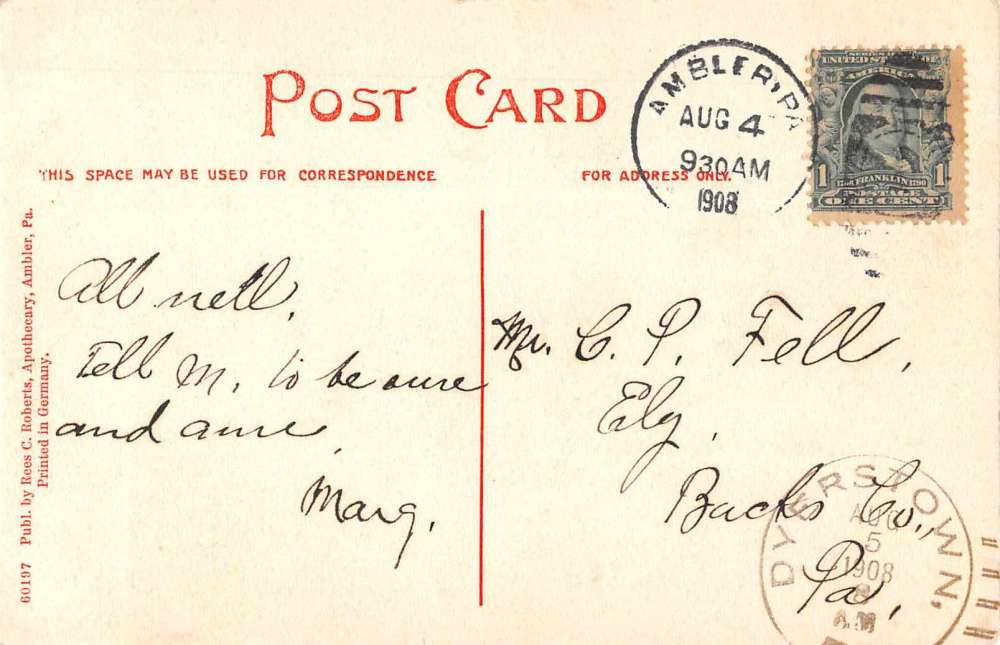 POST CARD
THIS SPACE MAY BE USED FOR CORRESPONDENCE
FOR ADDRESS ONLY.
AMBLER, PA
AUG 4
930AM
1908
SERIES
UNITED STATES OF
AMERICA
1 FRANKLIN 1790 1
ONE CENT
60197 Publ. by Rees C. Roberts, Apothecary, Ambler, Pa.
Printed in Germany.
All well.
Tell M. to be sure
and
Marg.
Mr. C. P. Fell,
Ely,
Bucks Co.,
Pa.
DYERSTOWN,
AUG
5
1908
AM